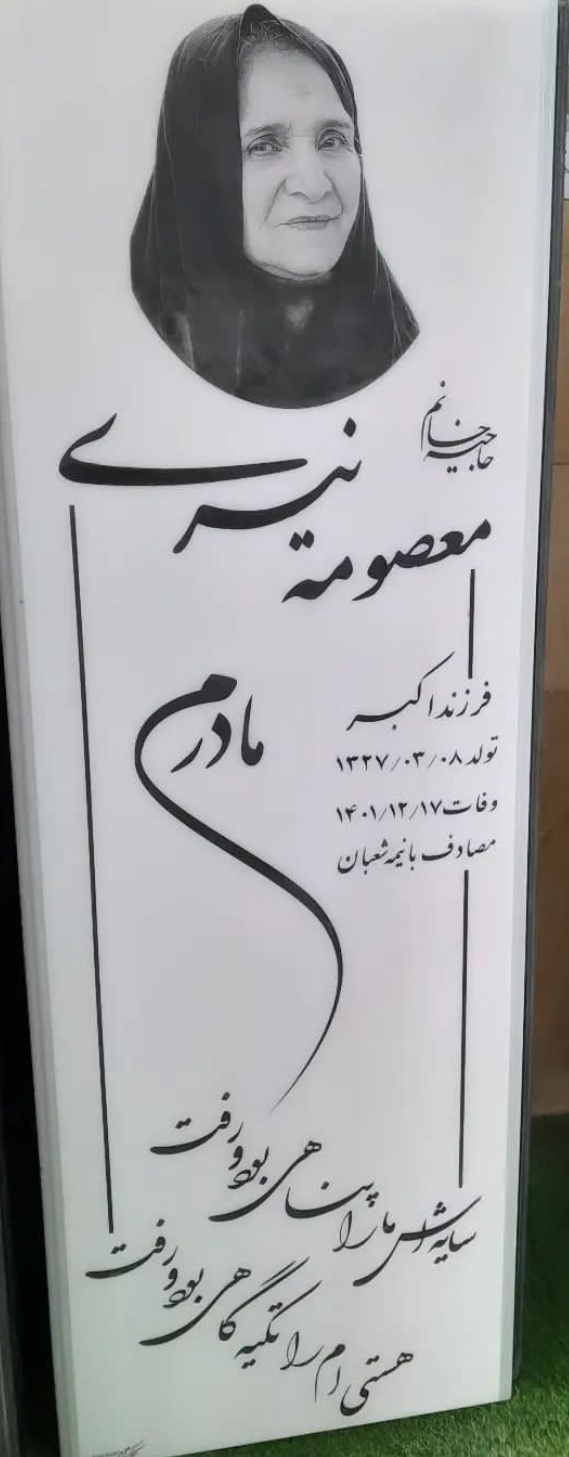 حاجیه خانم
معصومه نیری
فرزند اکبر
تولد ۱۳۲۷/۰۳/۰۸
وفات ۱۴۰۱/۱۲/۱۷
مصادف با نیمه شعبان
مادرم
سایه اش ما را پناهی بود و رفت
هستی ام را تکیه گاهی بود و رفت